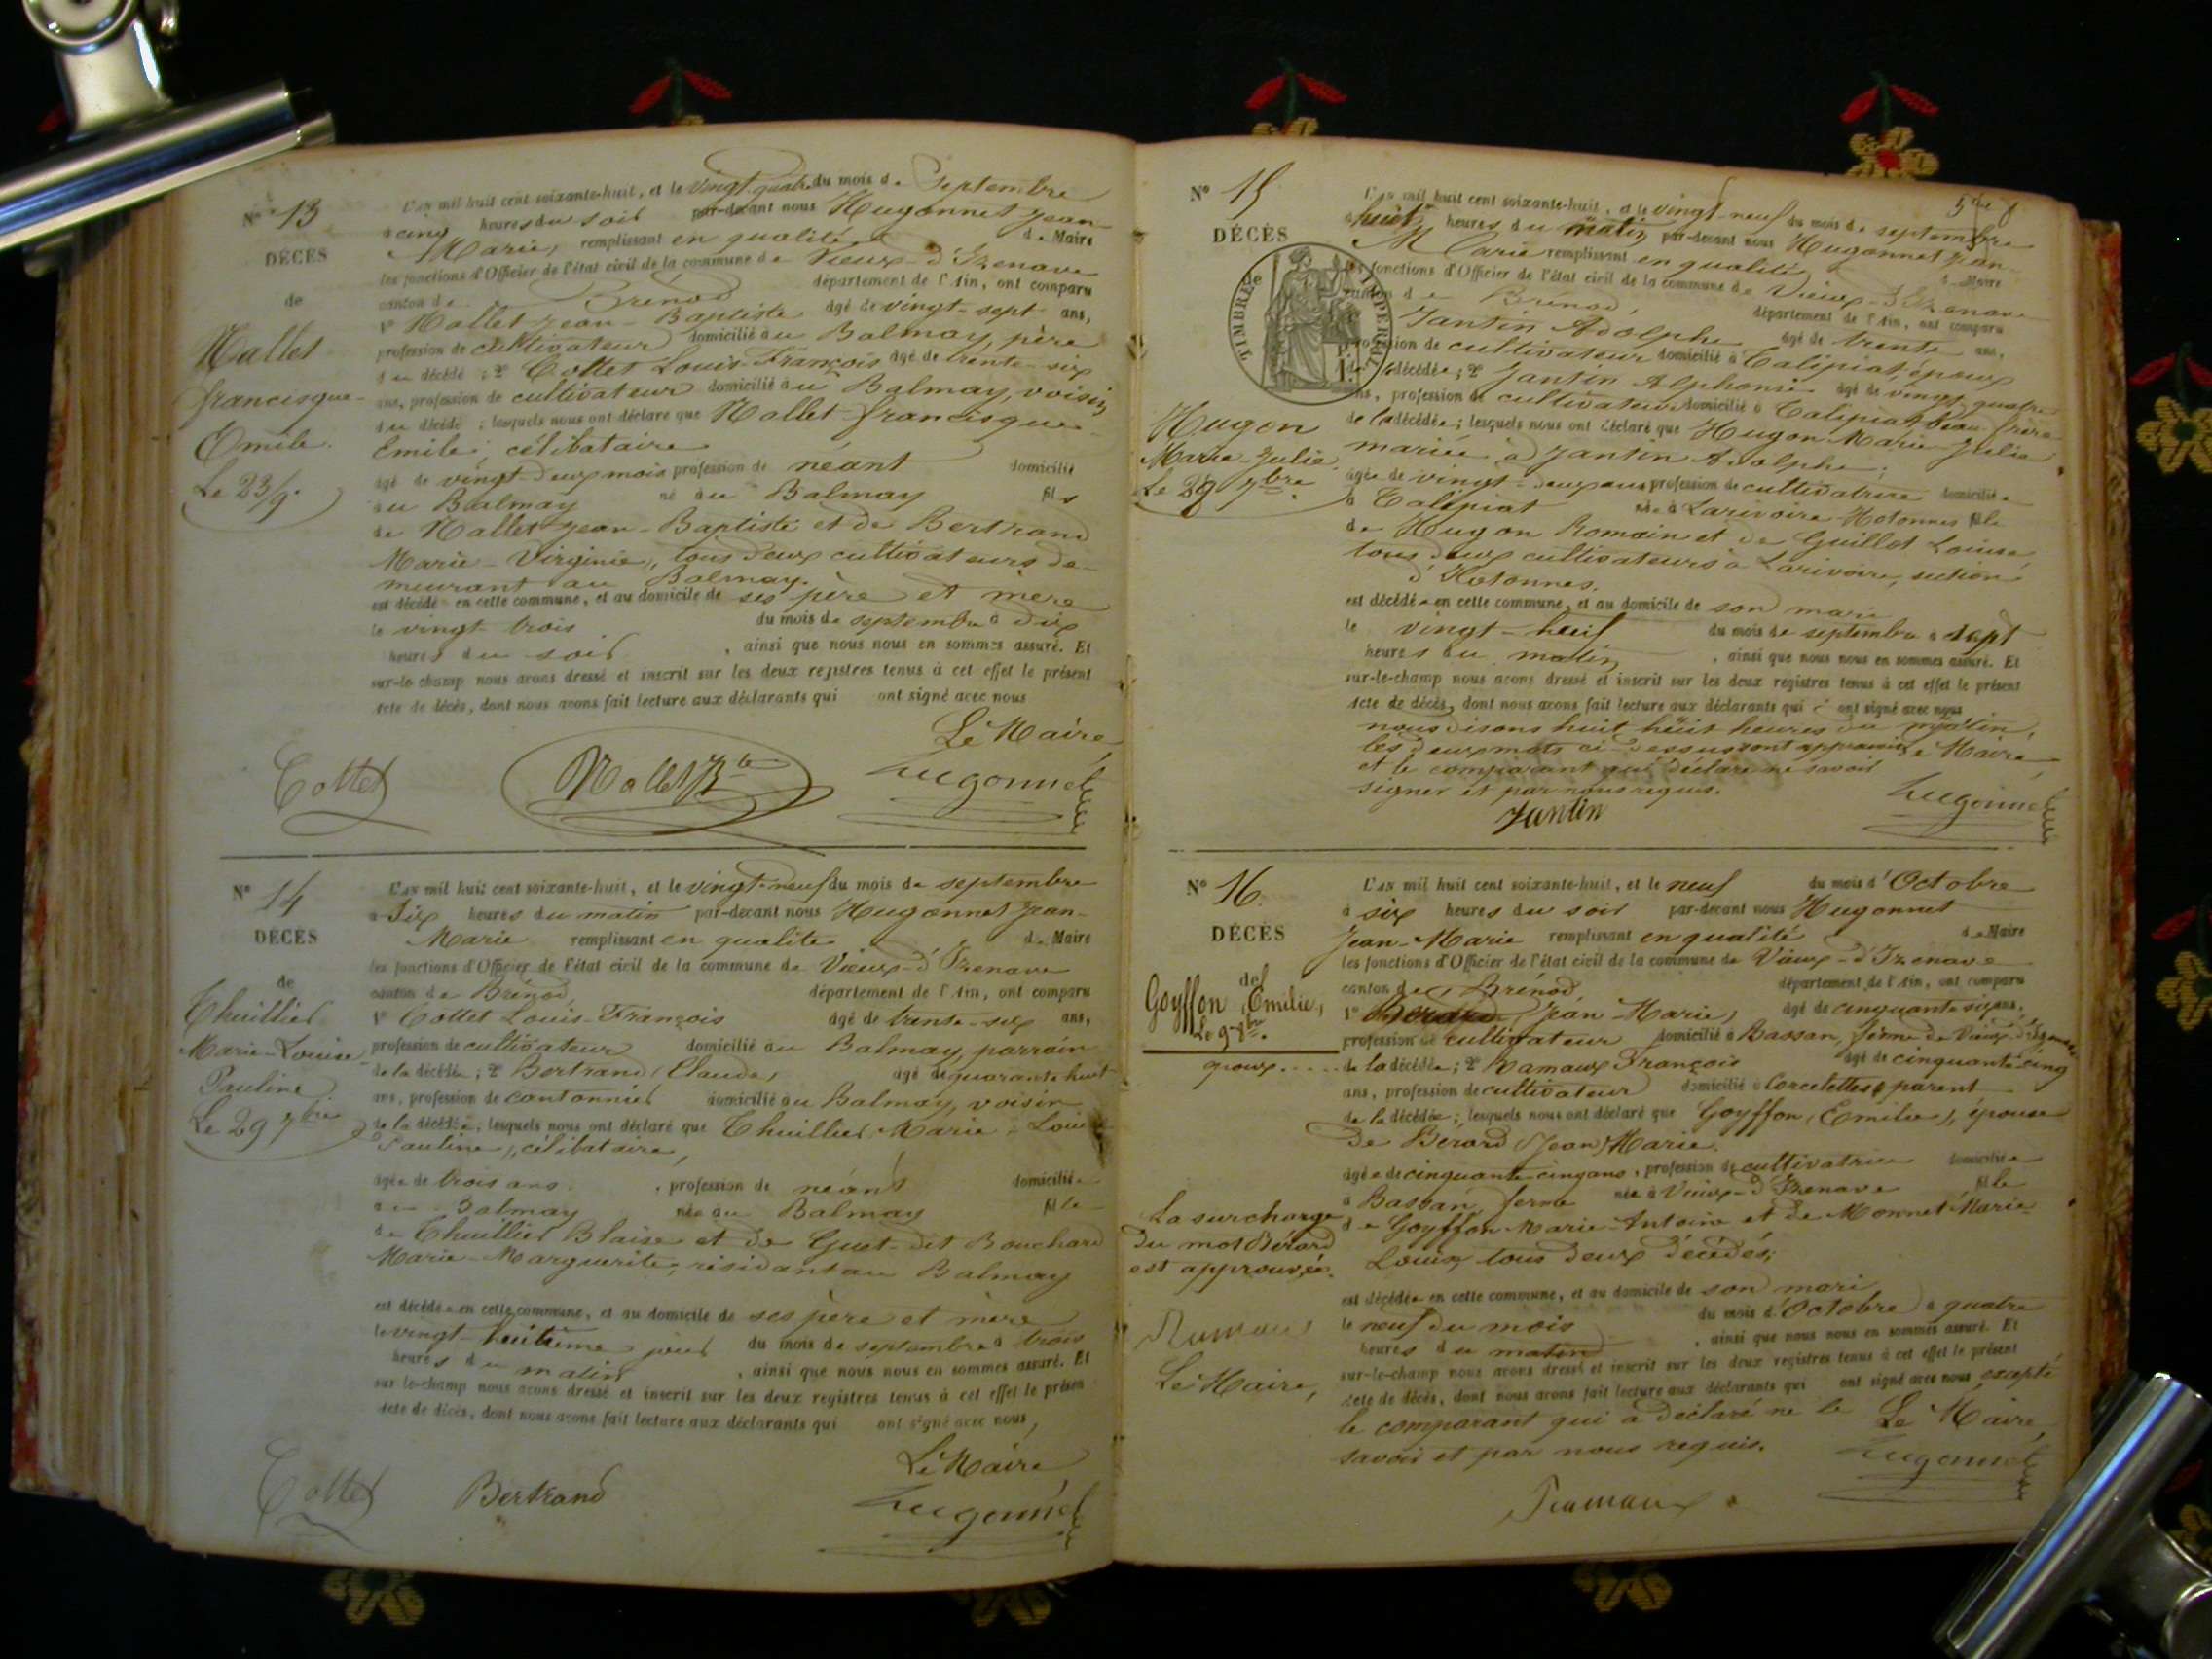 N° 13
DÉCÈS
de
Mallet
francisque-
Emile.
Le 23/9.
L'an mil huit cent soixante-huit, et le vingt-quatre du mois de Septembre
à cinq heures du soir par-devant nous Hugonnet Jean-
Marie, remplissant en qualité de Maire
les fonctions d'Officier de l'état civil de la commune de Vieux-d'Izenave
canton de Brénod département de l'Ain, ont comparu
1° Mallet Jean-Baptiste âgé de vingt-sept ans,
profession de cultivateur domicilié au Balmay, père
du décédé ; 2° Cottet Louis-François âgé de trente-six
ans, profession de cultivateur domicilié au Balmay, voisin
du décédé ; lesquels nous ont déclaré que Mallet francisque-
Emile, célibataire
âgé de vingt-deux mois profession de néant domicilié
au Balmay né au Balmay fils
de Mallet Jean-Baptiste et de Bertrand
Marie-Virginie, tous deux cultivateurs de-
meurant au Balmay.
est décédé en cette commune, et au domicile de ses père et mère
le vingt-trois du mois de septembre à dix
heures du soir, ainsi que nous nous en sommes assuré. Et
sur-le-champ nous avons dressé et inscrit sur les deux registres tenus à cet effet le présent
acte de décès, dont nous avons fait lecture aux déclarants qui ont signé avec nous
Le Maire,
Cottet Mallet Bte Hugonnet
N° 14
DÉCÈS
de
Thuillier
Marie-Louise
Pauline
Le 29 7bre
L'an mil huit cent soixante-huit, et le vingt-neuf du mois de septembre
à six heures du matin par-devant nous Hugonnet Jean-
Marie remplissant en qualité de Maire
les fonctions d'Officier de l'état civil de la commune de Vieux-d'Izenave
canton de Brénod, département de l'Ain, ont comparu
1° Cottet Louis-François âgé de trente-six ans,
profession de cultivateur domicilié au Balmay, parrain
de la décédée ; 2° Bertrand Claude, âgé de quarante huit
ans, profession de cantonnier domicilié au Balmay, voisin
de la décédée ; lesquels nous ont déclaré que Thuillier Marie-Louise
Pauline, célibataire,
âgée de trois ans, profession de néant domiciliée
au Balmay née au Balmay fille
de Thuillier Blaise et de Guet-dit Bouchard
Marie-Marguerite, résidant au Balmay
est décédée en cette commune, et au domicile de ses père et mère
le vingt-huitième jour du mois de septembre à trois
heures du matin, ainsi que nous nous en sommes assuré. Et
sur-le-champ nous avons dressé et inscrit sur les deux registres tenus à cet effet le présen
acte de décès, dont nous avons fait lecture aux déclarants qui ont signé avec nous,
Le Maire
Cottet Bertrand Hugonnet
N° 15
DÉCÈS
TIMBRE IMPÉRIAL
Hugon
Marie-Julie
Le 29 7bre.
L'an mil huit cent soixante-huit, et le vingt-neuf du mois de septembre
à huit heures du matin par-devant nous Hugonnet Jean-
Marie remplissant en qualité de Maire
les fonctions d'Officier de l'état civil de la commune de Vieux-d'Izenave
canton de Brénod, département de l'Ain, ont comparu
Jantin Adolphe âgé de trente ans,
profession de cultivateur domicilié à Talipiat, époux
de la décédée ; 2° Jantin Alphonse âgé de vingt quatre
ans, profession de cultivateur domicilié à Talipiat beau-frère
de la décédée ; lesquels nous ont déclaré que Hugon Marie-Julie
mariée à Jantin Adolphe ;
âgée de vingt-deux ans profession de cultivatrice domiciliée
à Talipiat née à Larivoire-Hotonnes fille
de Hugon Romain et de Guillot Louise
tous deux cultivateurs à Larivoire, section
d'Hotonnes.
est décédée en cette commune, et au domicile de son mari
le vingt-neuf du mois de septembre à sept
heures du matin, ainsi que nous nous en sommes assuré. Et
sur-le-champ nous avons dressé et inscrit sur les deux registres tenus à cet effet le présent
acte de décès, dont nous avons fait lecture aux déclarants qui ont signé avec nous
nous disons huit huit heures du matin,
les deux mots ci-dessus sont approuvés Le Maire
et le comparant qui déclare ne savoir
signer et par nous requis.
Jantin Hugonnet
N° 16.
DÉCÈS
de
Goyffon Emilie,
Le 9 8bre.
époux.....
La surcharge
du mot Bérard
est approuvée.
Ramaux
Le Maire,
L'an mil huit cent soixante-huit, et le neuf du mois d'Octobre
à six heures du soir par-devant nous Hugonnet
Jean-Marie remplissant en qualité de Maire
les fonctions d'Officier de l'état civil de la commune de Vieux-d'Izenave
canton de Brénod, département de l'Ain, ont comparu
1° Bérard Jean-Marie, âgé de cinquante six ans,
profession de cultivateur domicilié à Bassan, ferme de Vieux-d'Izenave
de la décédée ; 2° Ramaux François âgé de cinquante-cinq
ans, profession de cultivateur domicilié à Corcelettes parent
de la décédée ; lesquels nous ont déclaré que Goyffon (Emilie), épouse
de Bérard Jean Marie.
âgée de cinquante-cinq ans, profession de cultivatrice domiciliée
à Bassan, ferme née à Vieux-d'Izenave fille
de Goyffon Marie-Antoine et de Monnet Marie-
Louise tous deux décédés ;
est décédée en cette commune, et au domicile de son mari
le neuf du mois du mois d'Octobre à quatre
heures du matin, ainsi que nous nous en sommes assuré. Et
sur-le-champ nous avons dressé et inscrit sur les deux registres tenus à cet effet le présent
acte de décès, dont nous avons fait lecture aux déclarants qui ont signé avec nous excepté
le comparant qui a déclaré ne le Le Maire,
savoir et par nous requis. Hugonnet
Ramaux